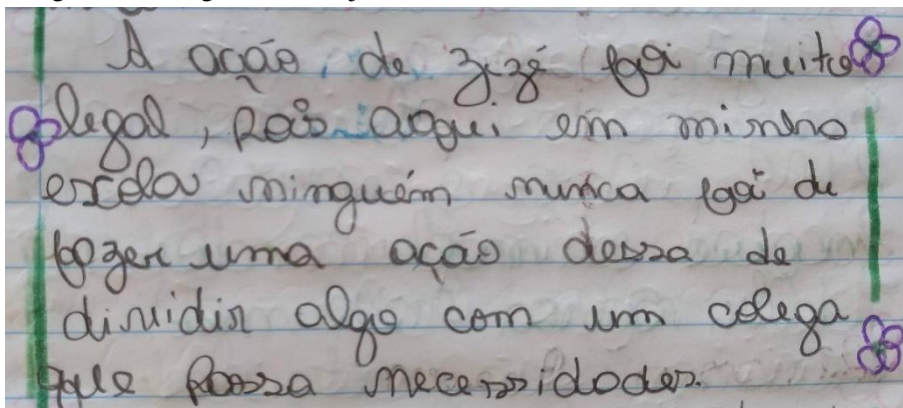 A ação, de zezé foi muito
legal, pois aqui em minha
escola ninguém nunca foi de
fazer uma ação dessa de
dividir algo com um colega
que passa necessidades.